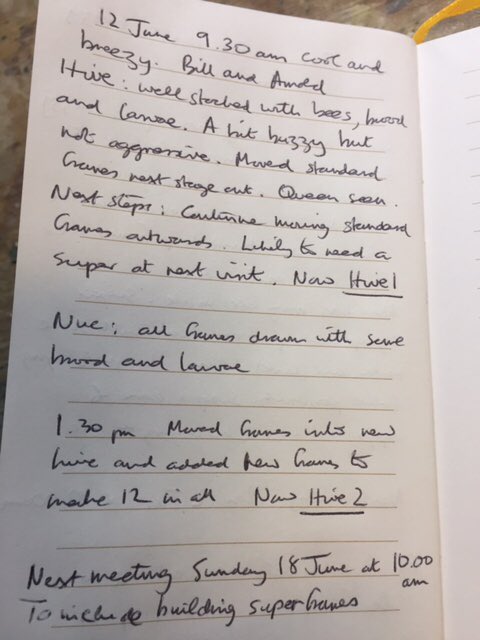 12 June 9.30 am cool and
breezy. Bill and
Hive: well stocked with bees, brood
and larvae. A bit buzzy but
not aggressive. Moved standard
frames next stage out. Queen seen.
Next steps: Continue moving standard
frames outwards. Likely to need a
super at next visit. Now Hive 1
Nuc: all frames drawn with some
brood and larvae
1.30 pm Moved frames into new
hive and added new frames to
make 12 in all Now Hive 2
Next meeting Sunday 18 June at 10.00
am
To include building super frames